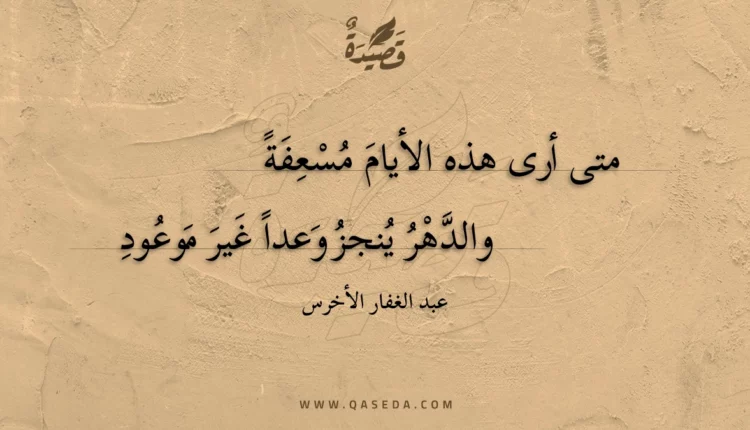 قَصِيْدَةٌ
متى أرى هذه الأيامَ مُسْعِفَةً
والدَّهْرُ يُنجزُ وَعداً غَيرَ مَوعُودِ
عبد الغفار الأخرس
WWW.QASEDA.COM